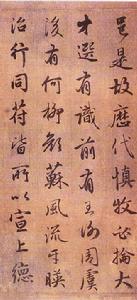 是故歷代慎牧必掄大
才選有識前有王謝周虞
後有何柳顏蘇風流互暎
治行同符皆所以宣上德